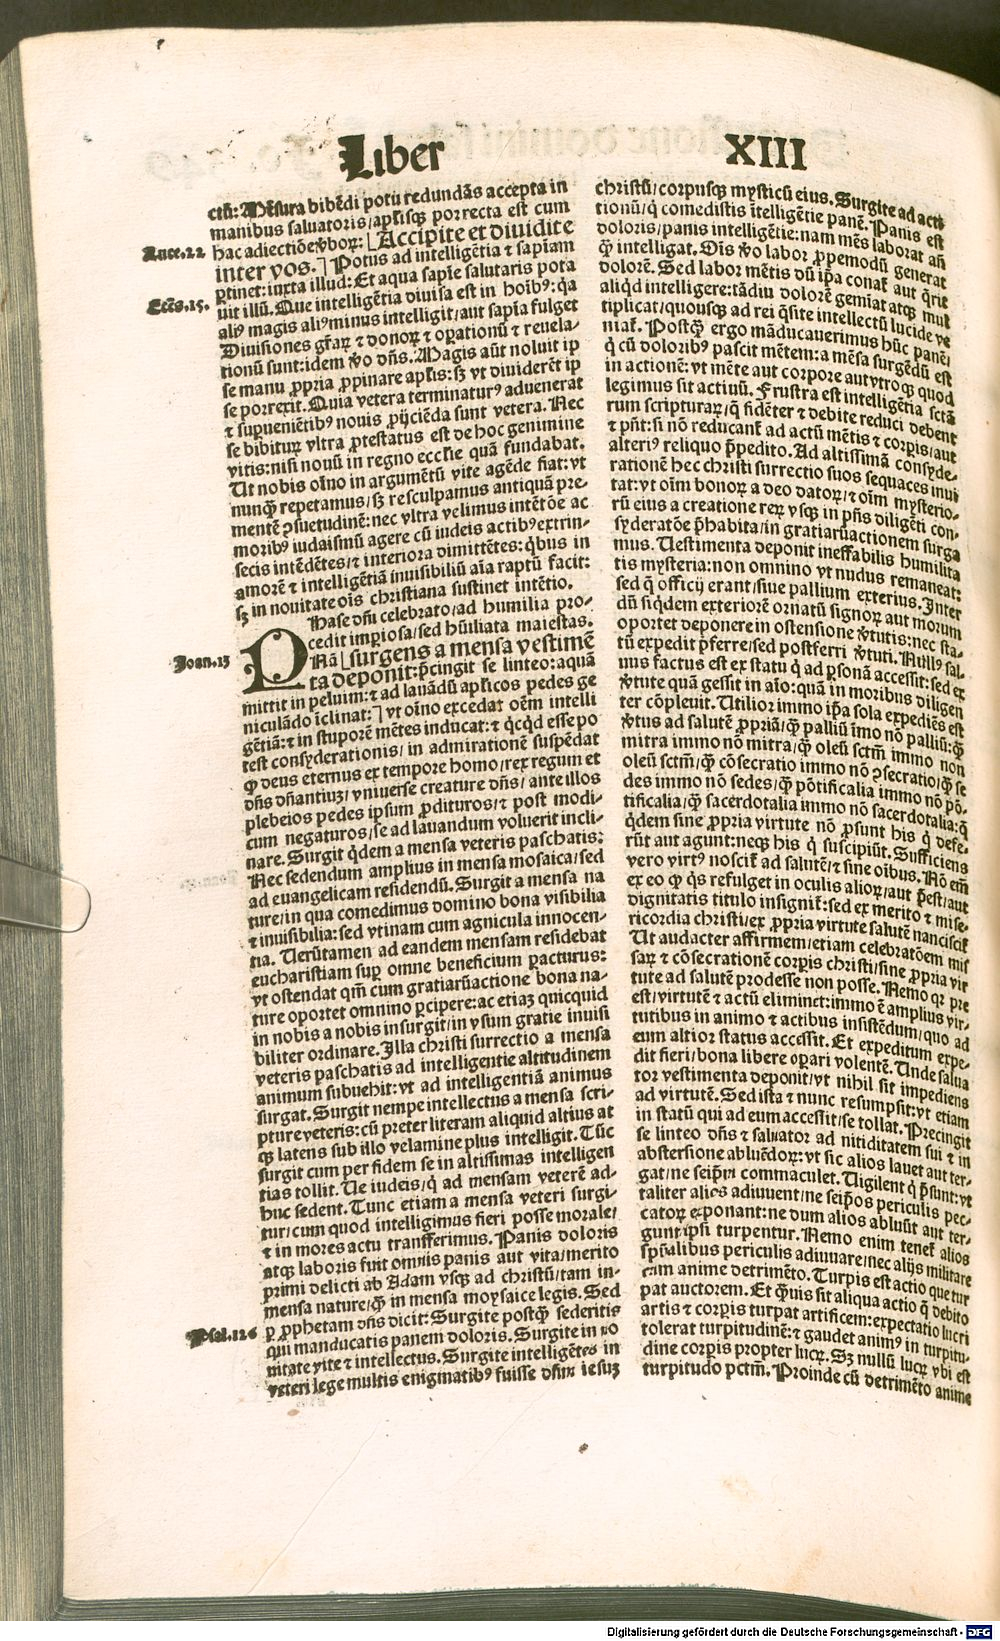 Liber XIII
ctũ: Mẽsura bibẽdi potũ redundãs accepta in
manibus saluatoris/apłisqꝫ porrecta est cum
Luce.22
hac adiectiõe ꝟboꝝ: ⌊Accipite et diuidite
inter vos.⌉ Potus ad intelligẽtiã ⁊ sapiam
ꝑtinet: iuxta illud: Et aqua sapiẽ salutaris pota
Eccs.15.
uit illũ. Que intelligẽtia diuisa est in hoĩbꝰ: q̃a
aliꝰ magis aliꝰ minus intelligit/aut sapia fulget
Diuisiones gr̃aꝝ ⁊ donoꝝ ⁊ oꝑationũ ⁊ reuela-
tionũ sunt: idem ꝟo dñs. Magis aũt noluit ip
se manu ꝓpria ꝓpinare apłis: sꝫ vt diuiderẽt ip
se porrexit. Quia vetera terminaturꝰ aduenerat
⁊ suꝑueniẽtibꝰ nouis ꝓijciẽda sunt vetera. Nec
se bibiturꝝ vltra ꝓtestatus est de hoc genimine
vitis: nisi nouũ in regno ecclie quã fundabat.
Ut nobis oĩno in argumẽtũ vite agẽde fiat: vt
nunq̃ repetamus/sꝫ resculpamus antiquã pre-
mentẽ ↄsuetudinẽ: nec vltra velimus intẽtõe ac
moribꝰ iudaismũ agere cũ iudeis actibꝰ extrin-
secis intẽdẽtes/⁊ interiora dimittẽtes: q̃bus in
amorẽ ⁊ intelligẽtiã inuisibiliũ aĩa raptũ facit:
sꝫ in nouitate oĩs christiana sustinet intẽtio.
Phase dñi celebrato/ad humilia pro-
cedit imꝑiosa/sed hũiliata maiestas.
Joan.13
Nã ⌊surgens a mensa vestimẽ
ta deponit: p̃cingit se linteo: aquã
mittit in peluim: ⁊ ad lauãdũ apłicos pedes ge
niculãdo ĩclinat:⌉ vt oĩno excedat oẽm intelli
gẽtiã: ⁊ in stuporẽ mẽtes inducat: ⁊ q̃cq̃d esse po
test consyderationis/in admirationẽ suspẽdat
ꝙ deus eternus ex tempore homo/rex regum et
dñs dñantiuꝫ/vniuerse creature dñs/ante illos
plebeios pedes ipsum ꝓdituros/⁊ post modi-
cum negaturos/se ad lauandum voluerit incli-
nare. Surgit q̃dem a mensa veteris paschatis:
Nec sedendum amplius in mensa mosaica/sed
ad euangelicam residendũ. Surgit a mensa na
ture/in qua comedimus domino bona visibilia
⁊ inuisibilia: sed vtinam cum agnicula innocen-
tia. Uerũtamen ad eandem mensam residebat
eucharistiam suꝑ omne beneficium ꝑacturus:
vt ostendat qm̃ cum gratiarũactione bona na-
ture oportet omnino ꝑcipere: ac etiaꝫ quicquid
in nobis a nobis insurgit/in vsum gratie inuisi
biliter ordinare. Illa christi surrectio a mensa
veteris paschatis ad intelligentie altitudinem
animum subuehit: vt ad intelligentiã animus
surgat. Surgit nempe intellectus a mensa scri-
pture veteris: cũ preter literam aliquid altius at
qꝫ latens sub illo velamine plus intelligit. Tũc
surgit cum per fidem se in altissimas intelligen
tias tollit. Ue iudeis/q̃ ad mensam veterẽ ad-
huc sedent. Tunc etiam a mensa veteri surgi-
tur/cum quod intelligimus fieri posse morale/
⁊ in mores actu transferimus. Panis doloris
atqꝫ laboris fuit omnis panis aut vita/merito
primi delicti ab Adam vsqꝫ ad christũ/tam in-
mensa nature/q̃ in mensa moysaice legis. Sed
Psal.126
ꝑ ꝓphetam dñs dicit: Surgite postq̃ sederitis
qui manducatis panem doloris. Surgite in no
uitate vite ⁊ intellectus. Surgite intelligẽtes in
veteri lege multis enigmatibꝰ fuisse dñm iesuꝫ
christũ/corpusqꝫ mysticũ eius. Surgite ad acti
tionũ/q̃ comedistis ĩtelligẽtie panẽ. Panis est
doloris/panis intelligẽtie: nam mẽs laborat añ
q̃ intelligat. Oĩs ꝟo labor ꝓpemodũ generat
dolorẽ. Sed labor mẽtis dũ ip̃a conat᷑ aut q̃rit
aliq̃d intelligere: tãdiu dolorẽ gemiat atqꝫ mul
tiplicat/quousqꝫ ad rei q̃site intellectũ lucide ve
niat᷑. Postq̃ ergo mãducauerimus hũc panẽ/
q̃ cũ doloribꝰ pascit mẽtem: a mẽsa surgẽdũ est
in actionẽ: vt mẽte aut corpore aut vtroqꝫ quod
legimus sit actiuũ. Frustra est intelligẽtia sctã
rum scripturaꝝ/q̃ fidẽter ⁊ debite reduci debent
⁊ pñt: si nõ reducant᷑ ad actũ mẽtis ⁊ corꝑis/aut
alteriꝰ reliquo p̃pedito. Ad altissimã consyde-
rationẽ hec christi surrectio suos sequaces inui
tat: vt oĩm bonoꝝ a deo datoꝝ/⁊ oĩm mysterio-
rũ eius a creatione reꝝ vsqꝫ in pñs diligẽti con-
syderatõe p̃habita/in gratiarũactionem surga
mus. Uestimenta deponit ineffabilis humilita
tis mysteria: non omnino vt nudus remaneat:
sed q̃ officij erant/siue pallium exterius. Inter
dũ siq̃dem exteriorẽ ornatũ signoꝝ aut morum
oportet deponere in ostensione ꝟtutis: nec sta-
tũ expedit p̃ferre/sed postferri ꝟtuti. Nullꝰ sal-
uus factus est ex statu q̃ ad ꝑsonã accessit: sed ex
ꝟtute quã gessit in aĩo: quã in moribus diligen
ter cõpleuit. Utilior immo ip̃a sola expediẽs est
ꝟtus ad salutẽ ꝓpriã/q̃ palliũ ĩmo nõ palliũ: q̃
mitra immo nõ mitra/q̃ oleũ sctm̃ immo non
oleũ sctm̃/q̃ cõsecratio immo nõ ↄsecratio/q̃ se
des immo nõ sedes/q̃ põtificalia immo nõ põ-
tificalia/q̃ sacerdotalia immo nõ sacerdotalia: q̃
q̃dem sine ꝓpria virtute nõ ꝓsunt his q̃ defe-
rũt aut agunt: neqꝫ his q̃ suscipiũt. Sufficiens
vero virtꝰ noscit᷑ ad salutẽ/⁊ sine oibus. Nõ em̃
ex eo ꝙ q̃s refulget in oculis alioꝝ/aut p̃est/aut
dignitatis titulo insignit᷑: sed ex merito ⁊ mise-
ricordia christi/ex ꝓpria virtute salutẽ nanciscit᷑
Ut audacter affirmem/etiam celebratõem mis
saꝝ ⁊ cõsecrationẽ corꝑis christi/sine ꝓpria vir
tute ad salutẽ prodesse non posse. Nemo qꝛ pre
est/virtutẽ ⁊ actũ eliminet: immo ẽ amplius vir-
tutibus in animo ⁊ actibus insistẽdum/quo ad
eum altior status accessit. Et expeditum expe-
dit fieri/bona libere oꝑari volentẽ. Unde salua
tor vestimenta deponit/vt nihil sit impediens
ad virtutẽ. Sed ista ⁊ nunc resumpsit: vt etiam
in statũ qui ad eum accessit/se tollat. Precingit
se linteo dñs ⁊ saluator ad nitiditatem sui ⁊ in
abstersione abluẽdoꝝ: vt sic alios lauet aut ter-
gat/ne seip̃m commaculet. Uigilent q̃ p̃sunt: vt
taliter alios adiuuent/ne seip̃os periculis pec-
catoꝝ exponant: ne dum alios abluũt aut ter-
gunt/ipsi turpentur. Nemo enim tenet᷑ alios
spũalibus periculis adiuuare/nec alijs militare
cum anime detrimẽto. Turpis est actio que tur
pat auctorem. Et q̃uis sit aliqua actio q̃ debito
artis ⁊ corꝑis turpat artificem: expectatio lucri
tolerat turpitudinẽ: ⁊ gaudet animꝰ in turpitu-
dine corꝑis propter lucꝝ. Sꝫ nullũ lucꝝ vbi est
turpitudo pctm̃. Proinde cũ detrimẽto anime
Digitalisierung gefördert durch die Deutsche Forschungsgemeinschaft - DFG